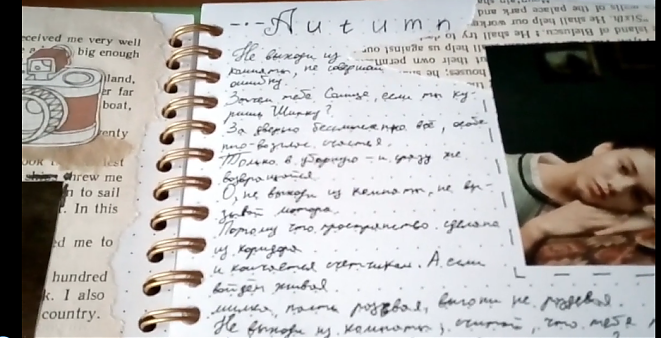 ceived me very well
big enough
land,
er far
boat,
enty
threw me
n to sail
. In this
ed me to
hundred
k. I also
country.
Autumn
Не выходи из
комнаты, не совершай
ошибку.
Зачем тебе Солнце, если ты ку-
ришь Шипку?
За дверью бессмысленно всё, особе
нно - возглас счастья.
Только в уборную - и сразу же
возвращайся.
О, не выходи из комнаты, не вы-
зывай мотора.
Потому что пространство сделано
из коридора
и кончается счетчиком. А если
войдет живая
милка, пасть разевая, выгони не раздевая.
Не выходи из комнаты; считай, что тебя
walls of the palace park and
Island of Blefuscu. He shall try to
"SIXTH. He shall help our
help us against
of their own
houses; he